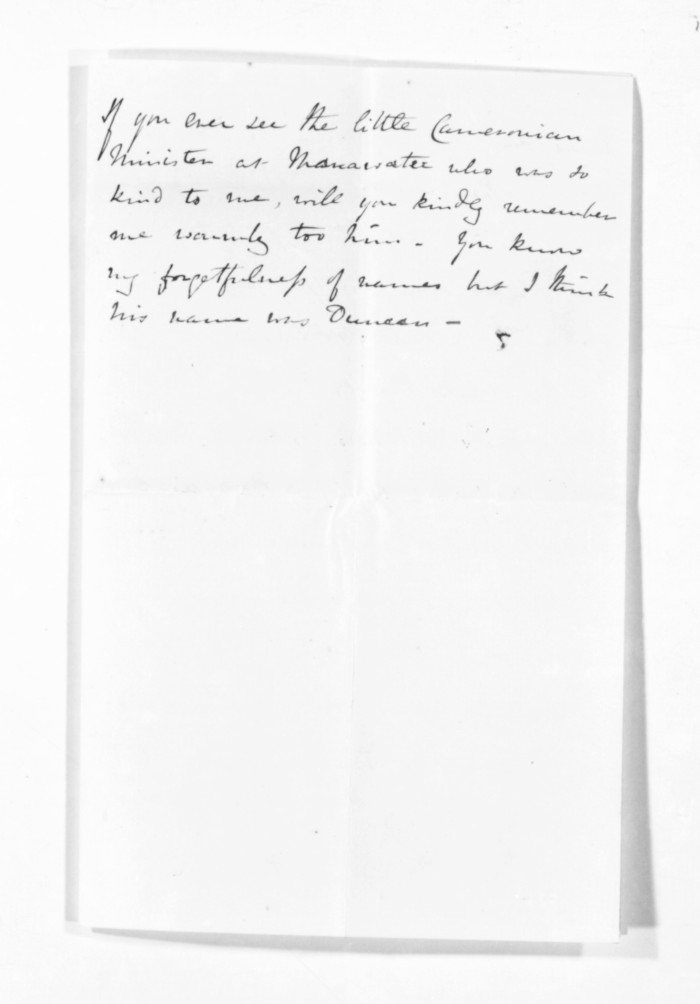 If you ever see the little Cameronian
Minister at Manawatee who was so
kind to me, will you kindly remember
me warmly too him - You know
my forgetfulness of names but I think
his name was Duncan -